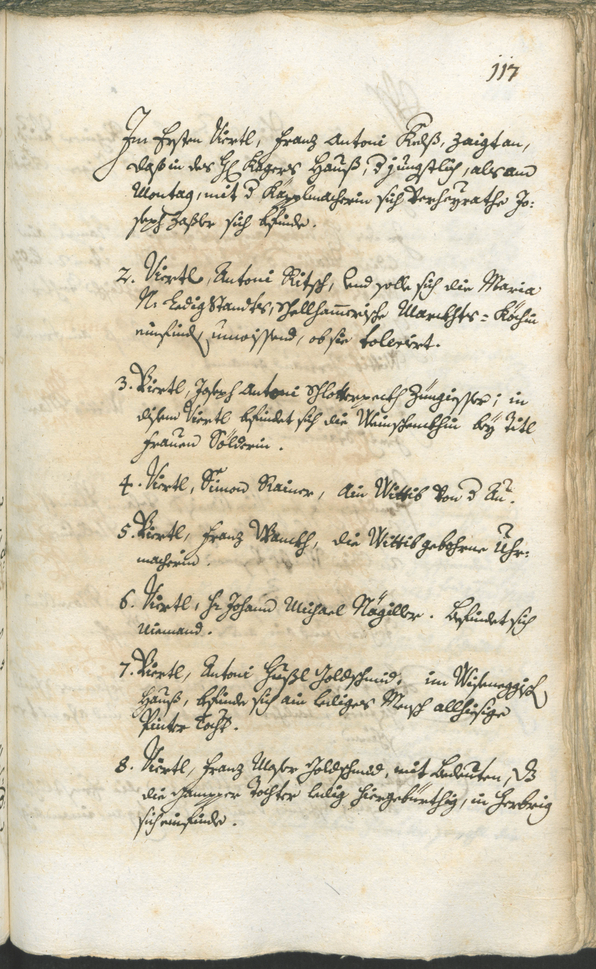 117
Im Ersten Viertl, Franz Antoni Kelß, zaigt an,
daß in des H: Kagers Hauß, d jüngstlich, als am
Montag, mit d Kapplmacherin sich verheyrathe Jo=
seph Haßler sich befinde.
2. Viertl, Antoni Ritsch, und solle sich die Maria
N: Ledig Standts, Köchin
einfinden, unwissend, ob sie tolerirt.
3. Viertl, Joseph Antoni Schlotterpeckh Züngiesser; in
disem Viertl befindet sich die bey Titl
Frauen Sölderin.
4. Viertl, Simon Rainer, ain Wittib von d Au.
5. Viertl, Franz die Wittib gebohrne Uhr=
macherin.
6. Viertl, H: Johann Michael Nägiller. Befindet sich
niemand.
7. Viertl, Antoni Hußl Goldschmid. im
Hauß, befinde sich ain lediges Mensch allhiesige
Pinter Tocht:
8. Viertl, Franz Goldschmid, mit bedeuten, dz
die Tochter ledig hiergebürthig, in Herberg
sich einfinde.